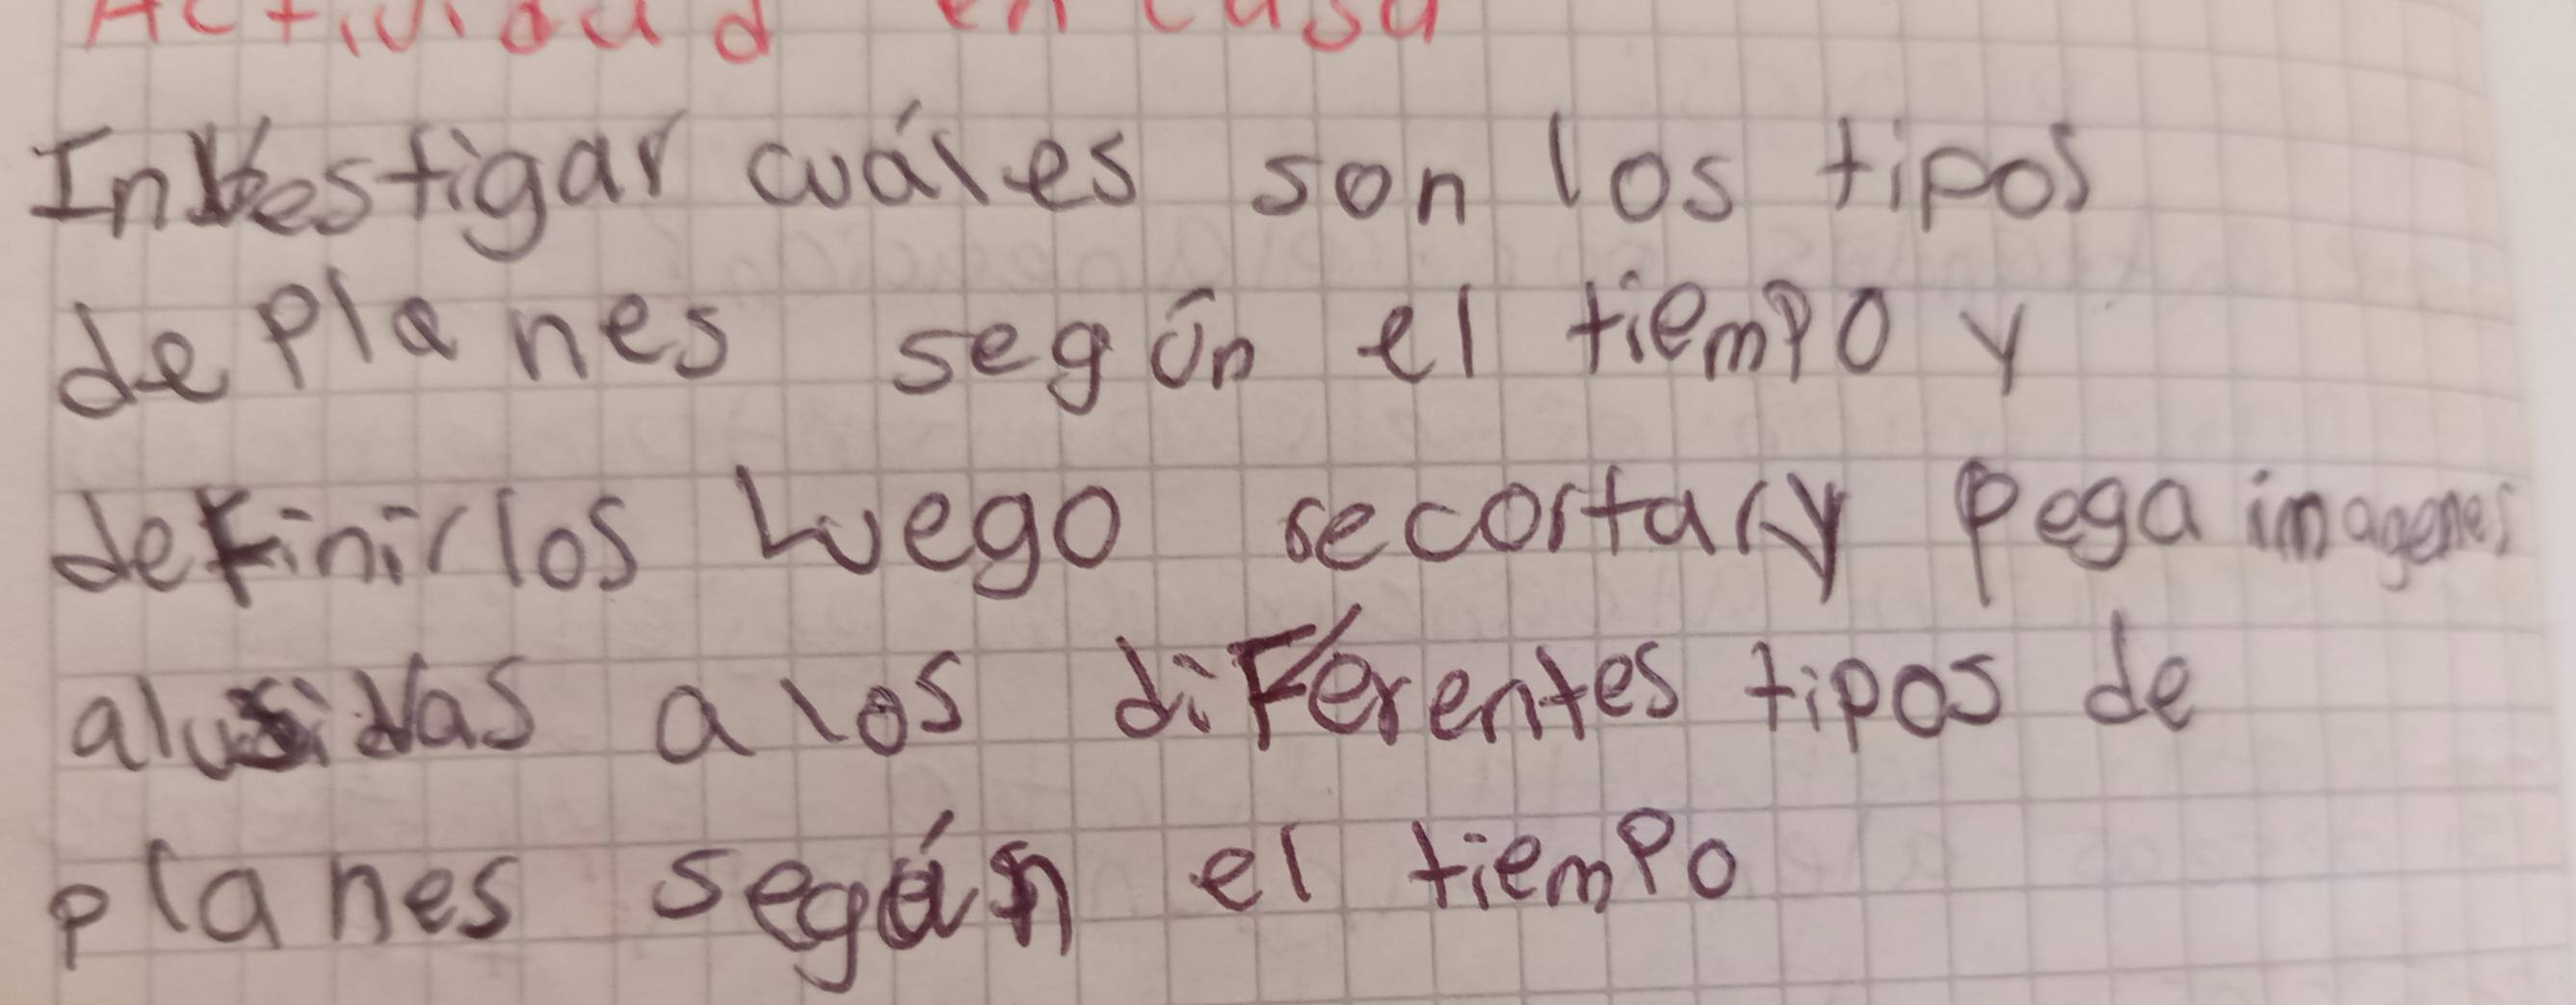 Actividad en casa
Investigar cuáles son los tipos
de planes según el tiempo y
definirlos Luego recortar y pega imagenes
alusivas a los diferentes tipos de
planes según el tiempo